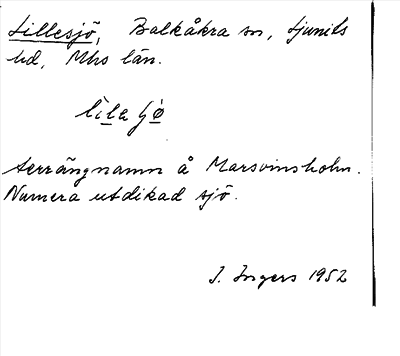 Lillesjö, Balkåkra sn, Ljunits
hd, Mhs län.
lila ʃø
terrängnamn å Marsvinsholm.
Numera utdikad sjö.
J. Ingers 1952